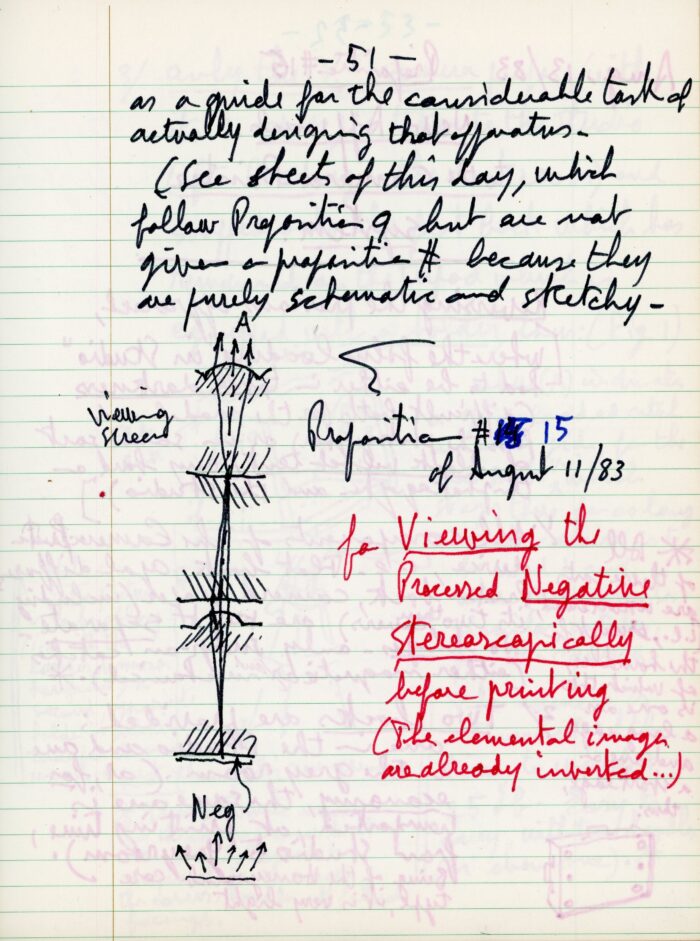 - 51 -
as a guide for the considerable task of
actually designing that apparatus -
(See sheets of this day, which
follow Proposition 9 but are not
given a proposition # because they
are purely schematic and sketchy -
A
Viewing
screen
Proposition # 15
of August 11/83
for Viewing the
Processed Negative
Stereoscopically
before printing
(The elemental images
are already inverted...)
Neg